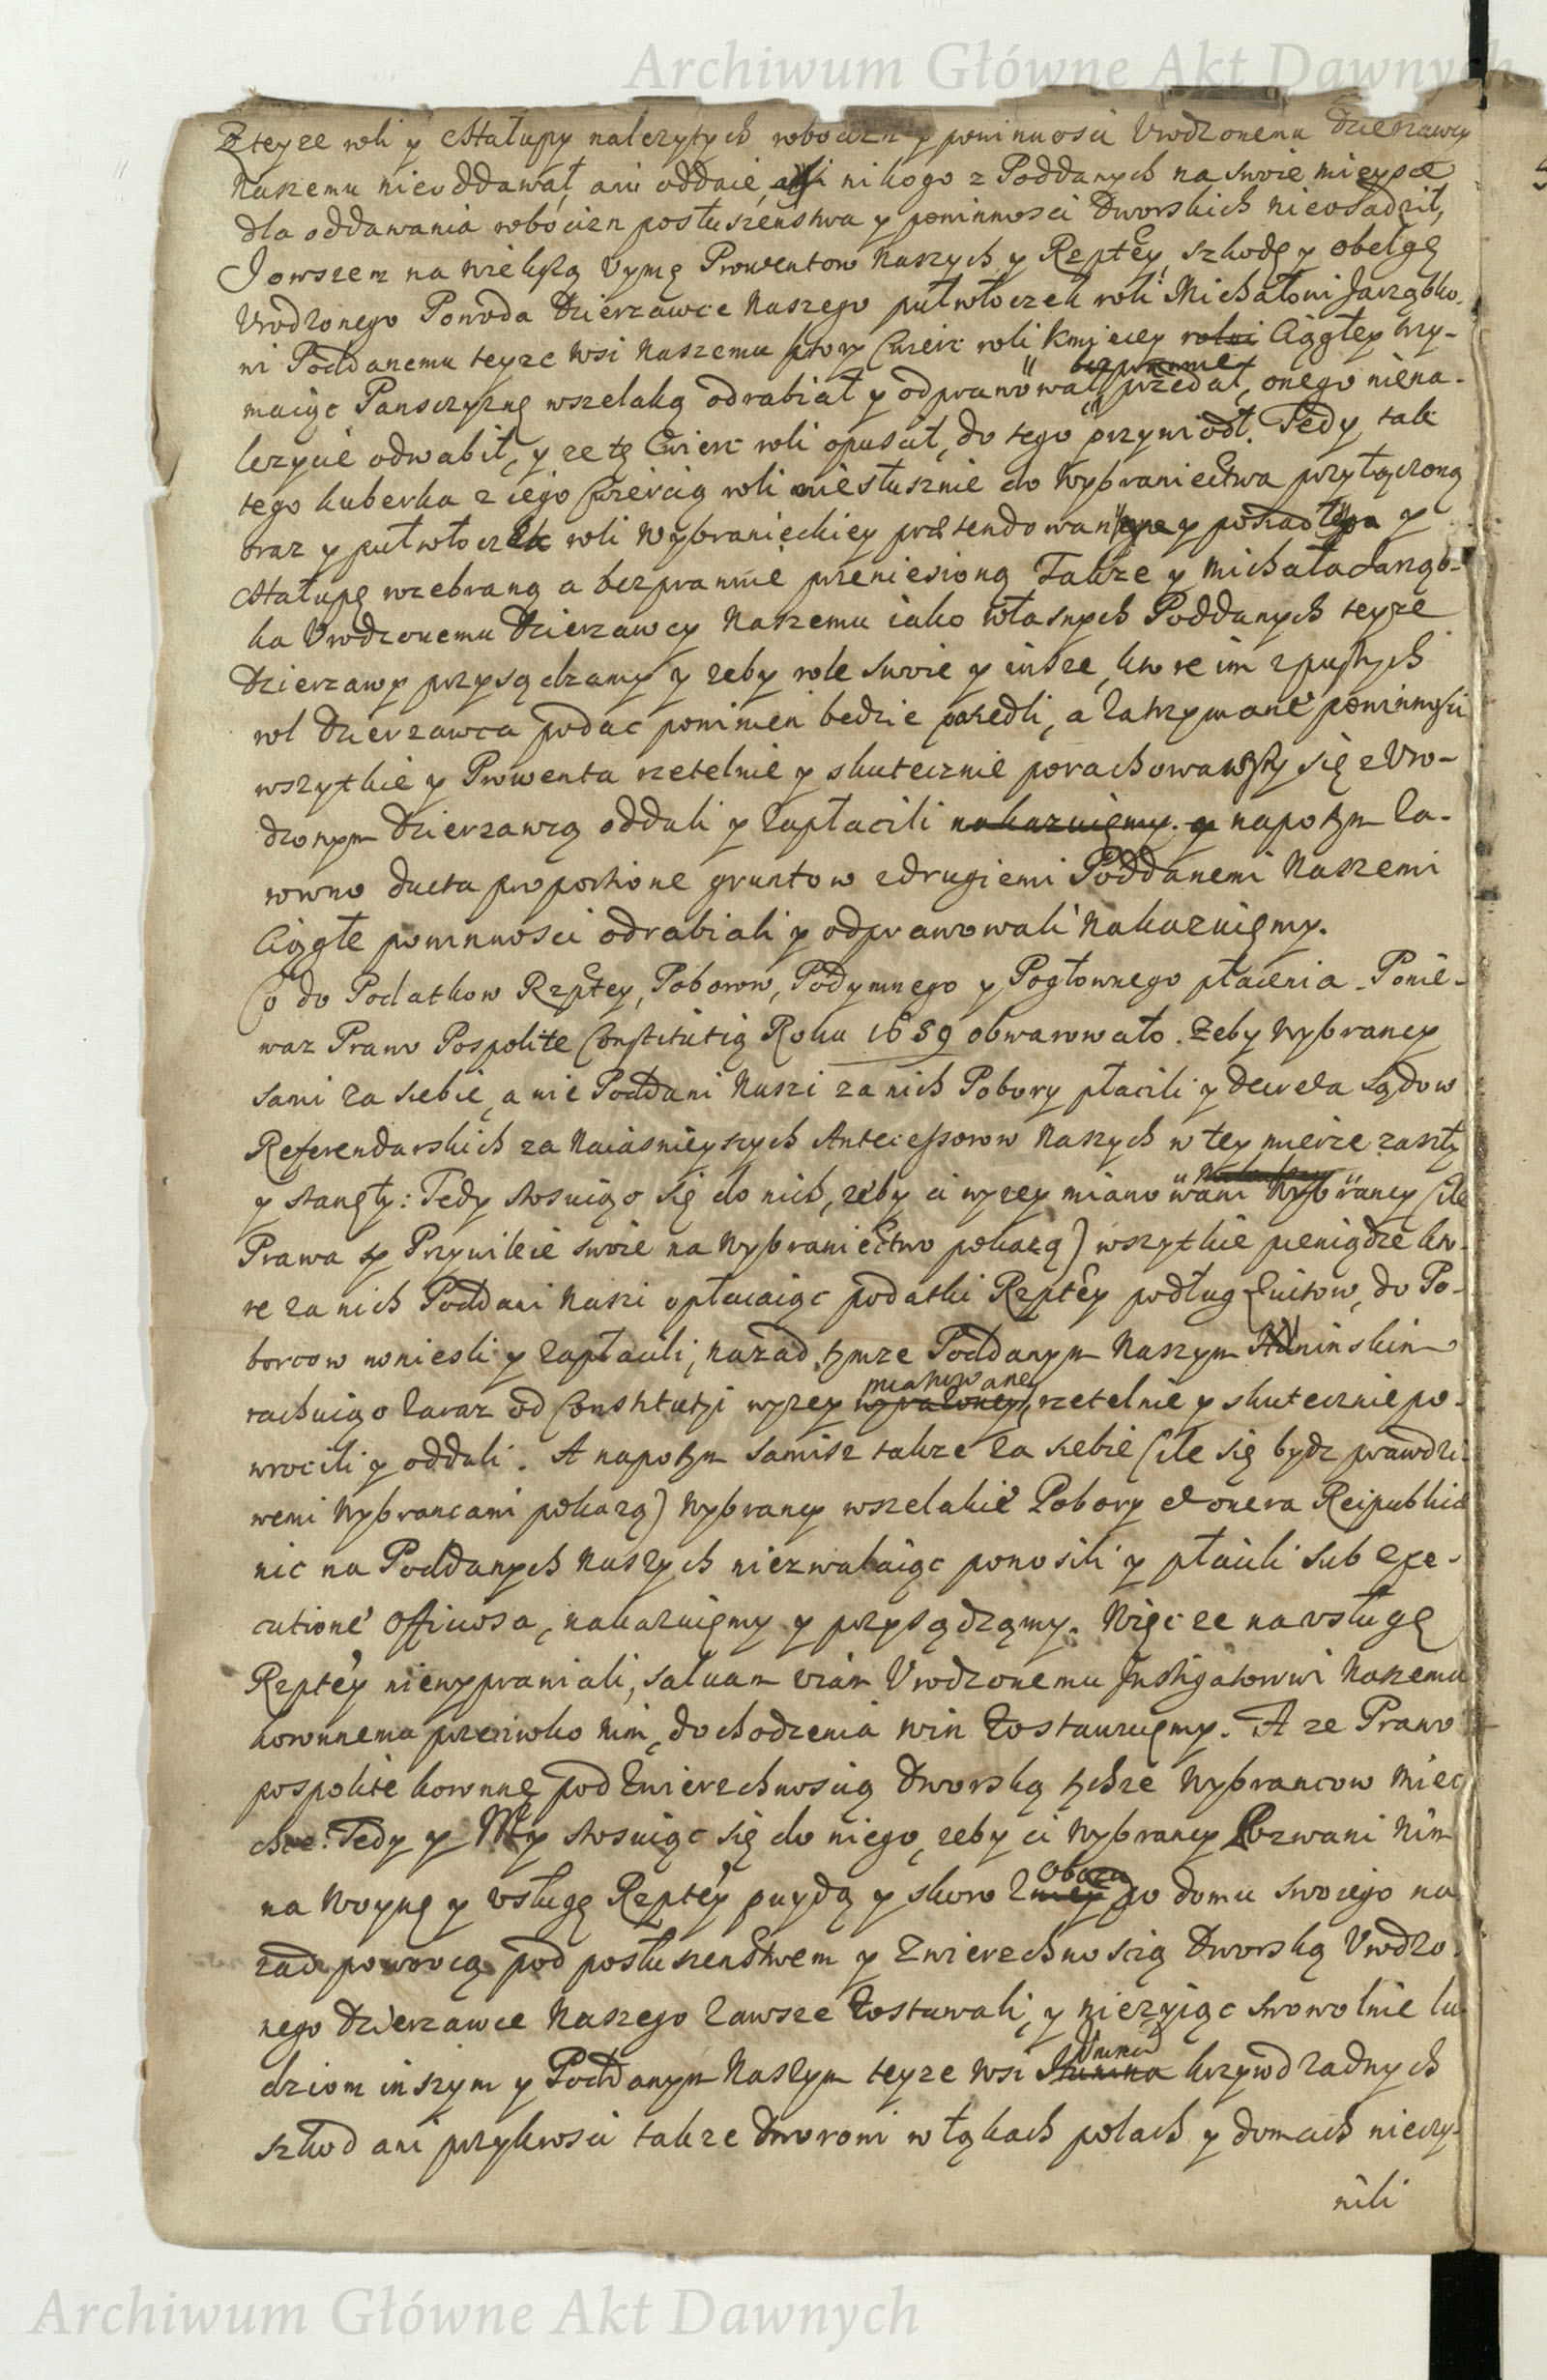 Archiwum Główne Akt Dawnych
Zteyze roli y Chałupy nalezytych robocizn y powinnosci Vrodzonemu Dzierzawcy
Naszemu nieoddawał, ani oddaie, ani nikogo z Poddanych na swoie mieysce
dla oddawania robocizn posłuszenstwa y powinnosci Dworskich nieosadził,
Jowszem na wielką Vymę Prowentow Naszych y Rzptey szkodę y obelgę
Vrodzonego Powoda Dzierzawce Naszego pułwłoczek roli Michałowi Jarząbko-
wi Poddanemu teyze Wsi Naszemu ktory Cwierc roli Kmiecey rolni Ciągłey trzy-
bezprawnie
maiąc Panszczyznę wszelaką odrabiał y odprawował, przedał, onego niena-
lezycie odwabił, y ze tę Cwierc roli opuscił, do tego przywiodł. Tedy tak
tego kuberka z iego Cwiercią roli niesłusznie do Wybraniectwa przyłączoną
oraz y pułwłoczek roli Wybranieckiey prætendowaney y y
Chałupę rozebraną a bezprawnie przeniesioną Takze y Michała Jarząb-
ka Vrodzonemu Dzierzawcy Naszemu iako własnych Poddanych teyze
Dzierzawy przysądzamy y zeby role swoie y insze, ktore im zpustych
rol Dzierzawca podac powinien bedzie posiedli, a zatrzymane powinnosci
wszytkie y Prowenta rzetelnie y skutecznie porachowawszy się z Vro-
dzonym Dzierzawcą oddali y zapłacili nakazuięmy. y napotym za-
rowno ducta proportione gruntow zdrugiemi Poddanemi Naszemi
Ciągłe powinnosci odrabiali y odprawowali Nakazuięmy.
Co do Podatkow Rzptey, Poborow, Podymnego y Pogłownego płacenia. Ponie-
waz Prawo Pospolite Constitutią Roku 1659 obwarowało. Zeby Wybrancy
sami za siebie, a nie Poddani Naszi zanich Pobory płacili y decreta Sądow
Referendarskich za Naiasnieyszych Antecessorow Naszych w tey mierze zaszły
y stanęły: Tedy stosuiąc się do nich, zeby ci wyzey mianowani Wybrancy (ile
Prawa y Przywileie swoie na Wybraniectwo pokazą) wszytkie pieniądze kto-
re zanich Poddani Naszi opłacaiąc podatki Rzptey podług kwitow, do Po-
borcow wniesli y zapłacili, nazad tymze Poddanym Naszym
mianowaney
rachuiąc zaraz od Constitutyi wyzey wyrazoney, rzetelnie y skutecznie po-
wrocili y oddali. A napotym samisz takze za siebie (ile się bydz prawdzi-
wemi Wybrancami pokazą) Wybrancy wszelakie Pobory et onera Reipublicæ
nic na Poddanych Naszych niezwalaiąc ponosili y płacili sub exe-
cutione officiosa, nakazuięmy y przysądzamy. Więc ze na vsługę
Rzptey niewyprawiali, saluam viam Vrodzonemu Instigatorowi Naszemu
koronnemu przeciwko nim, dochodzenia win zostawuięmy. A ze Prawo
pospolite koronne pod Zwierzchnoscią Dworską tychze Wybrancow miec
chce: Tedy y My stosuiąc się do niego, zeby ci Wybrancy Pozwani nim
Obozu
na Woynę y vsługę Rzptey puydą y skoro z niey do domu swoiego na
zad powrocą pod posłuszenstwem y Zwierzchnoscią Dworską Vrodzo-
nego Dzierzawce Naszego zawsze zostawali, y niezyiąc swowolnie lu-
dziom inszym y Poddanym Naszym teyze Wsi krzywd zadnych
szkod ani przykrosci takze Dworowi w łąkach polach y domach nieczy-
nili
Archiwum Główne Akt Dawnych